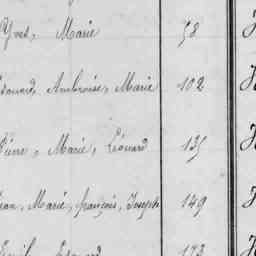 Yves, Marie 58
Edouard, Ambroise, Marie 102
Pierre, Marie, Léonard 135
Jean, Marie, françois, Joseph 149
173